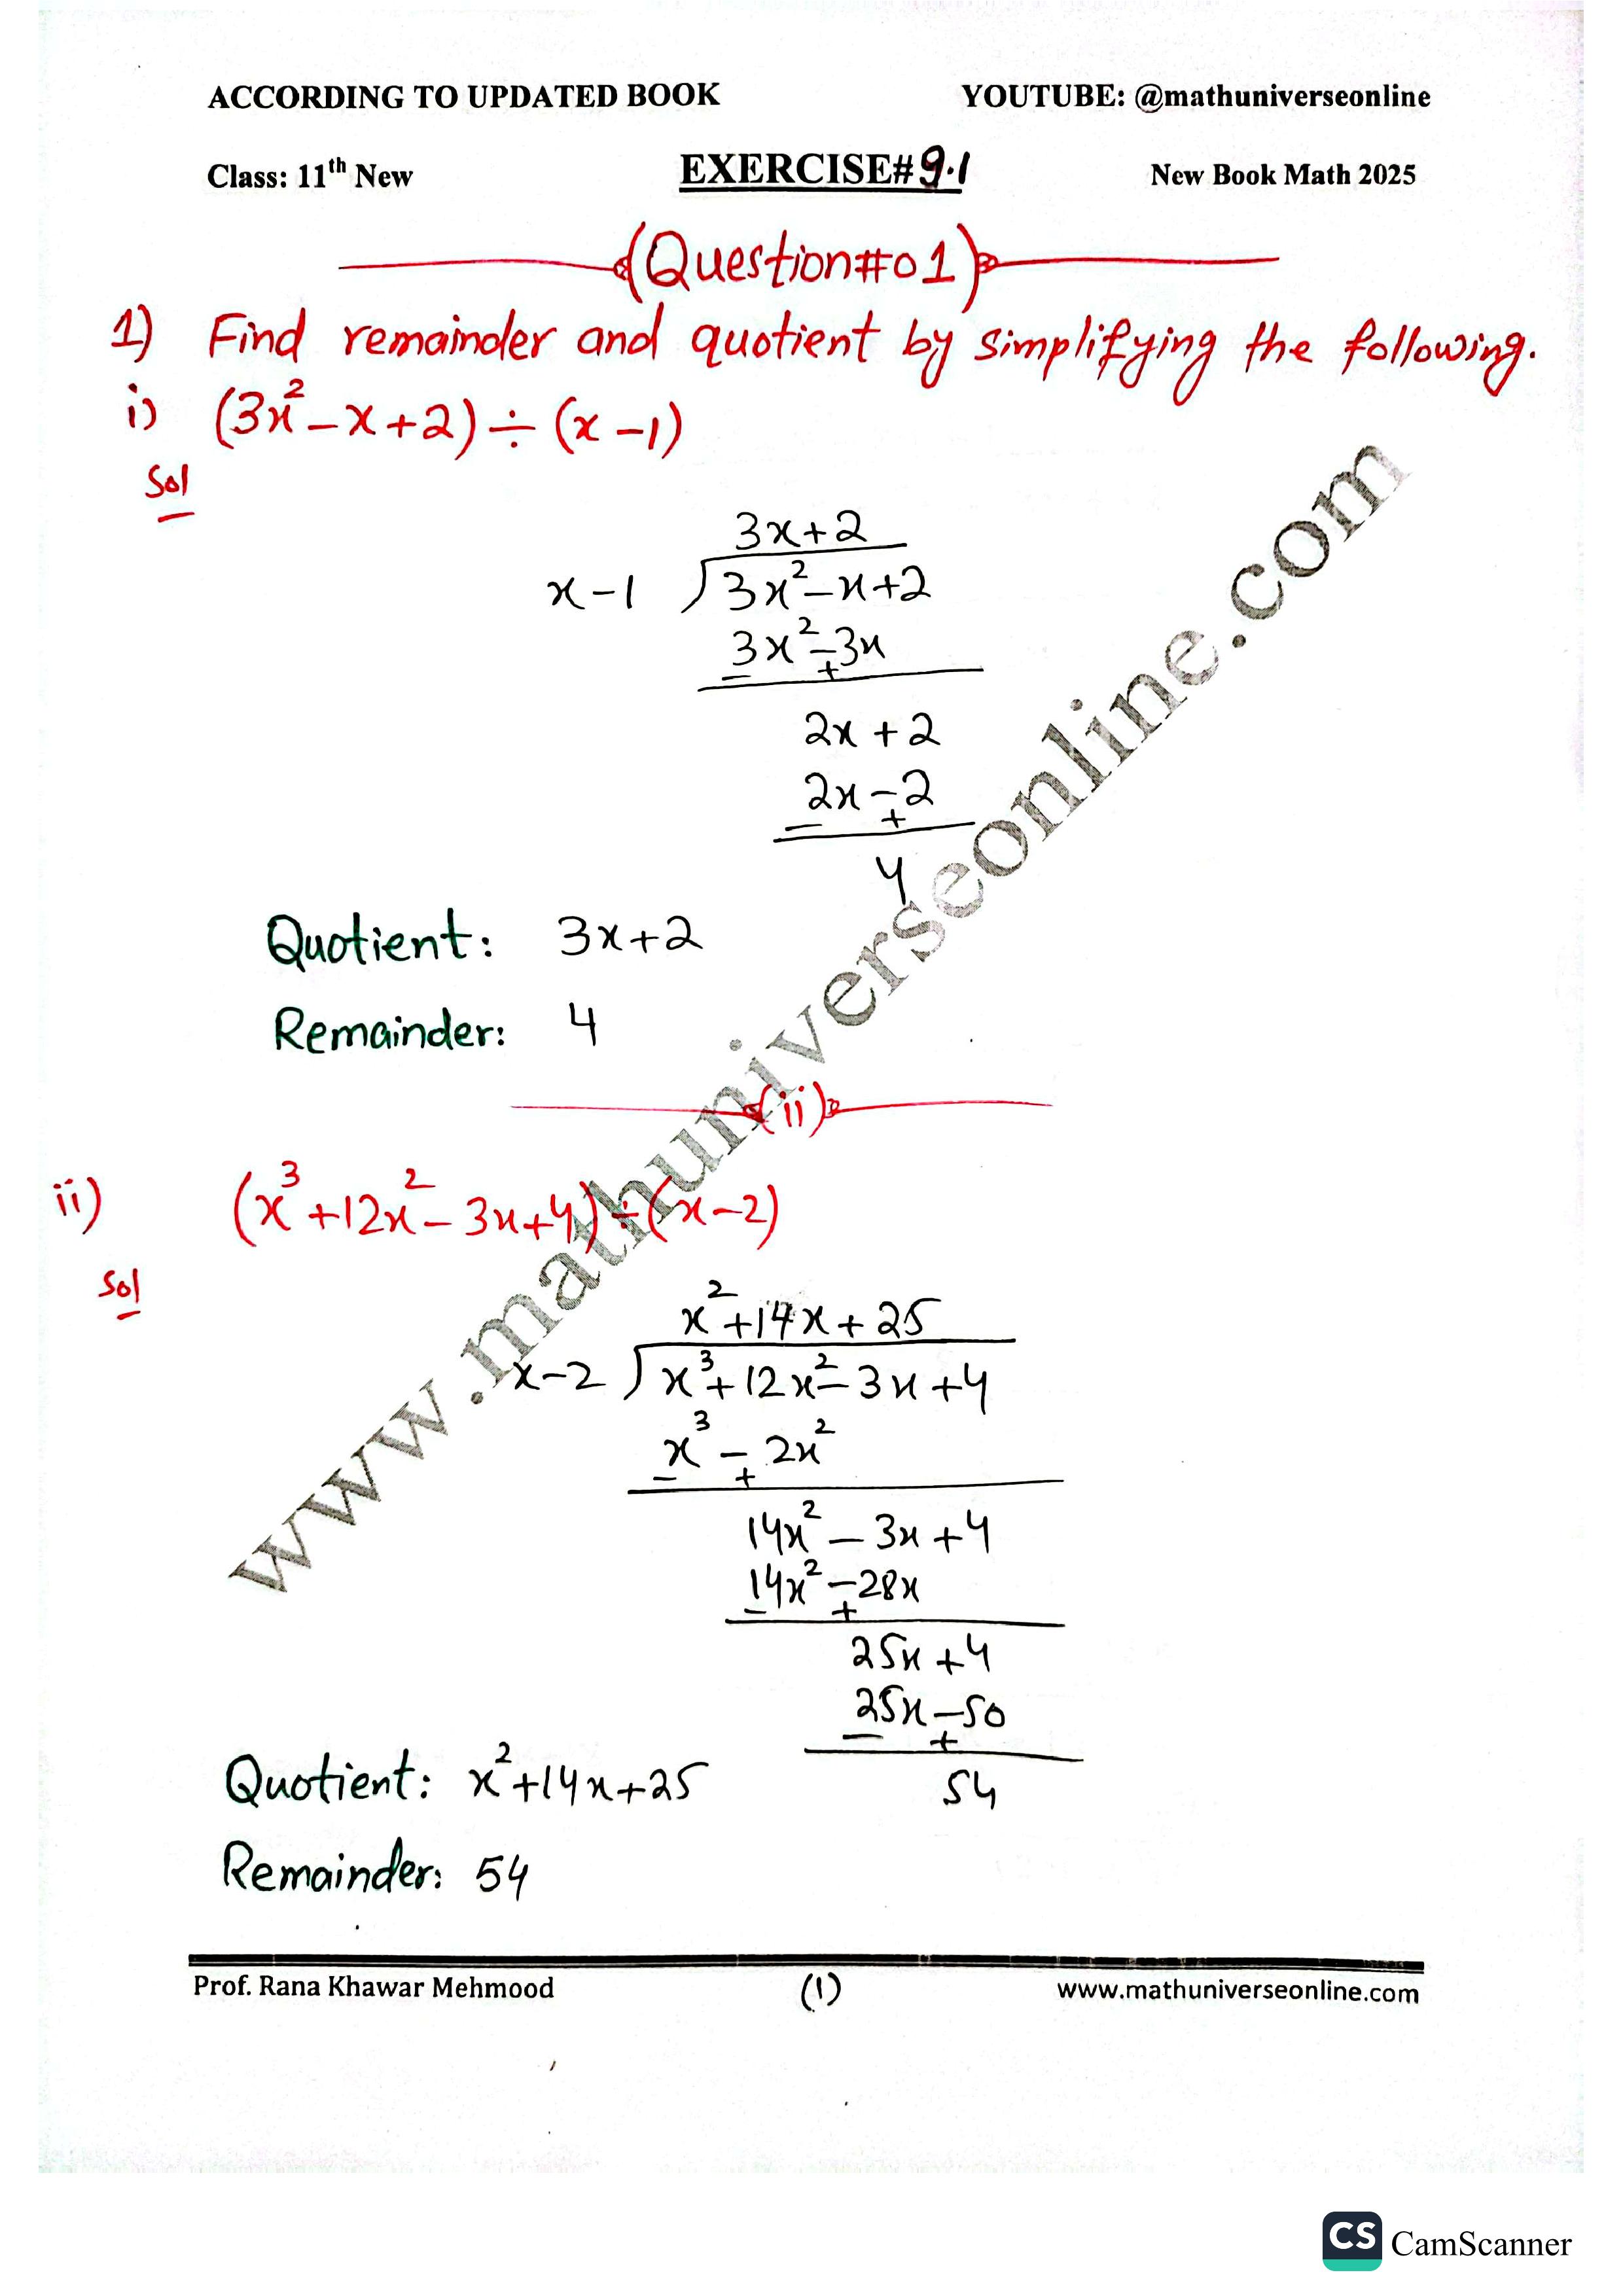 ACCORDING TO UPDATED BOOK YOUTUBE: @mathuniverseonline
Class: 11th New EXERCISE#9.1 New Book Math 2025
(Question#01)
1) Find remainder and quotient by simplifying the following.
i) (3x² - x + 2) ÷ (x - 1)
Sol
3x + 2
x - 1 ) 3x² - x + 2
3x² - 3x
- +
2x + 2
2x - 2
- +
4
Quotient: 3x + 2
Remainder: 4
(ii)
ii) (x³ + 12x² - 3x + 4) ÷ (x - 2)
Sol
x² + 14x + 25
x - 2 ) x³ + 12x² - 3x + 4
x³ - 2x²
- +
14x² - 3x + 4
14x² - 28x
- +
25x + 4
25x - 50
- +
54
Quotient: x² + 14x + 25
Remainder: 54
www.mathuniverseonline.com
Prof. Rana Khawar Mehmood (1) www.mathuniverseonline.com
CS CamScanner